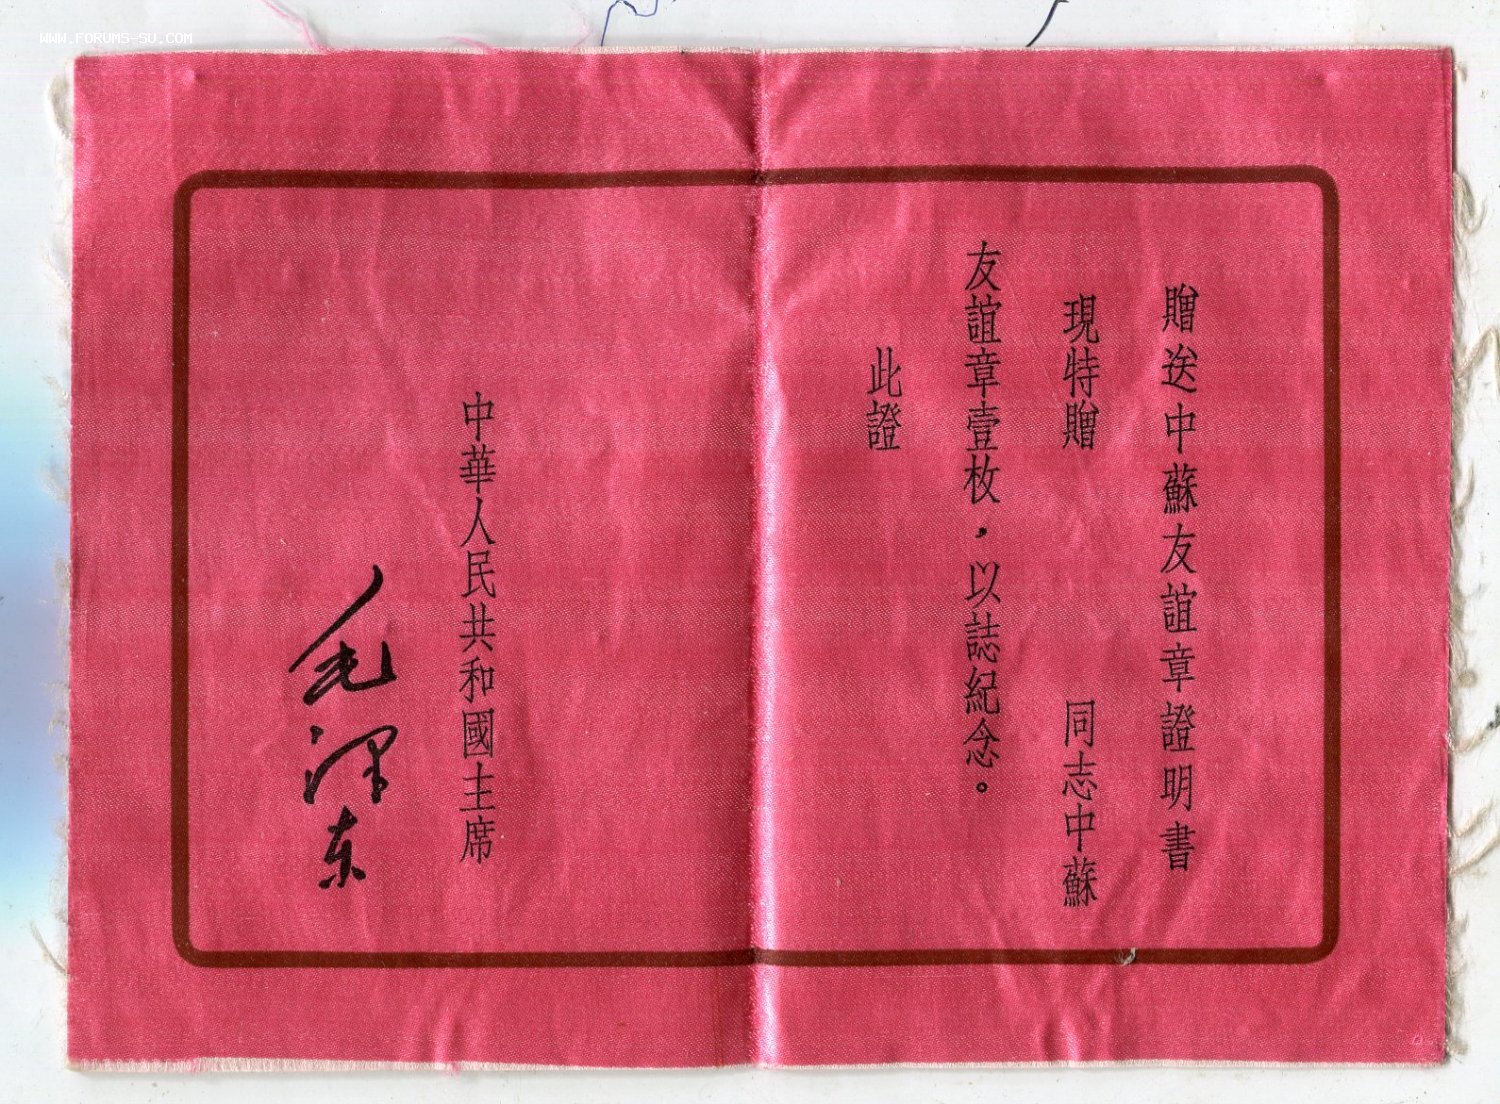 WWW.FORUMS-SU.COM
贈送中蘇友誼章證明書
現特贈 同志中蘇
友誼章壹枚，以誌紀念。
此證
中華人民共和國主席
毛澤东